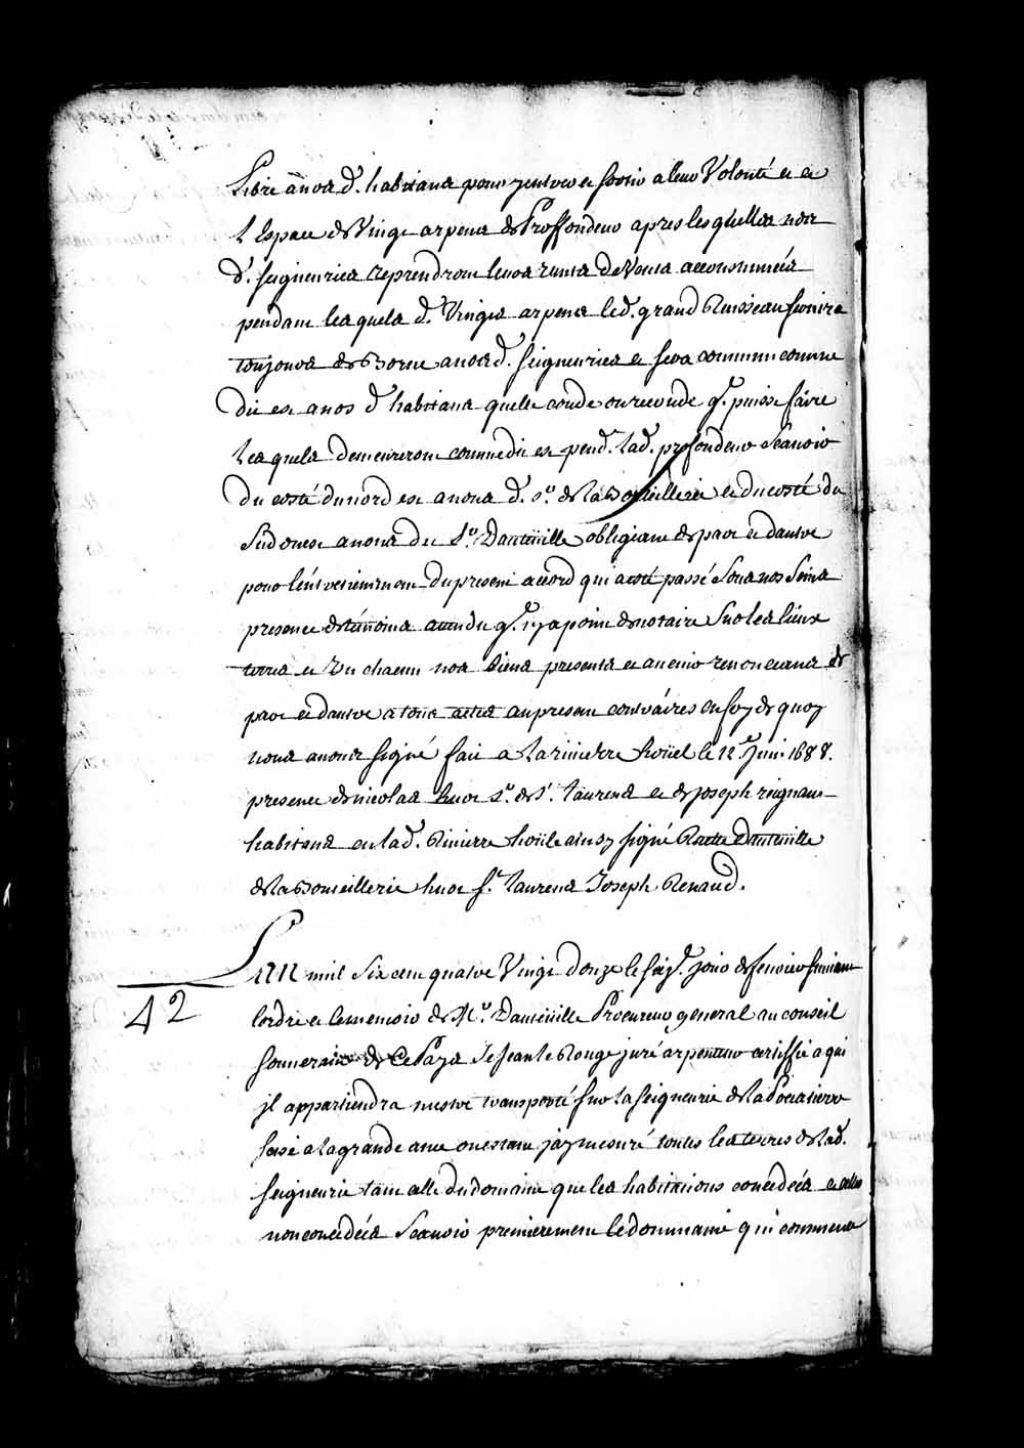 libre a nos d. habitans pour y entrer et sortir a leur volonté et ce
l espace de vingt arpens de proffondeur apres lesquelles nos
d. seigneuries reprendront leurs runts de vents accoustumés
pendant lesquels d. vingts arpens led. grand Ruisseau servira
toujours de borne a nosd. seigneuries et sera commun comme
dit est a nos d habitans quelle coude ou recoude q. puisse faire
lesquels demeureront comme dit est pend. lad. profondeur scavoir
du costé du nord est a nous d. sr. de la Bouteillerie et du costé du
sud ouest a nous du Sr. Dauteüille obligeant de part et dautre
pour lentretiennement du present accord qui a esté passé sous nos seins
presence de temoins attendu q. ny a point de notaire sur les lieux
et un chacun nos biens presents et a renonceans de
part et dautre a tous actes au present contraires en foy de quoy
nous avons signé fait a la rivierre hoüel le 12e. juin 1688.
presence de nicolas huot sr. de st. laurens et de joseph reignau
habitans en lad. Rivierre hoüle ainsy signé Ruette Dauteüille
de la Bouteillerie huot st. laurens Joseph Renaud.
Lan mil six cent quatre vingt douze le jour de fevrier suivant
lordre et le memoir de Mr. Dauteüille Procureur general au conseil
souverain de ce Pays Je Jean le Rouge juré arpenteur certiffie a qui
jl appartiendra mestre transporté sur la seigneurie de la Pocatierre
size a la grande ance ou estant jay mesuré toutes les terres de lad.
seigneurie tant celle du domaine que les habitations concedées et celles
non concedées scavoir premierement le dommaine qui commence
42